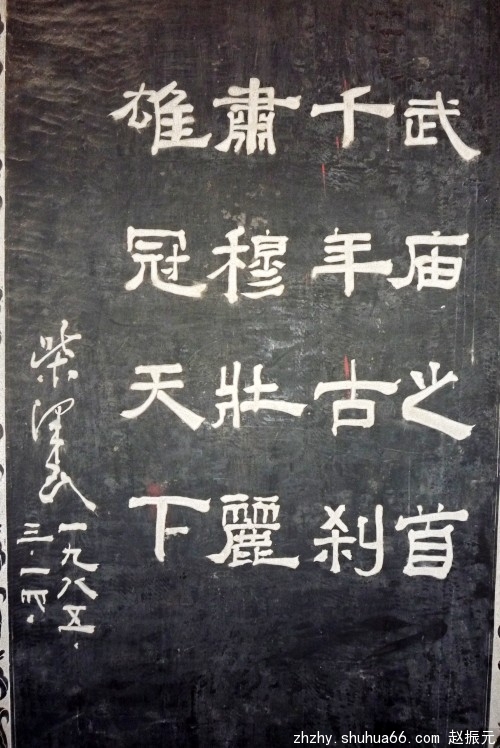 武庙之首
千年古刹
肃穆壮丽
雄冠天下
柴泽民
一九八五.
三.一四.
zhzhy.shuhua66.com 赵振元